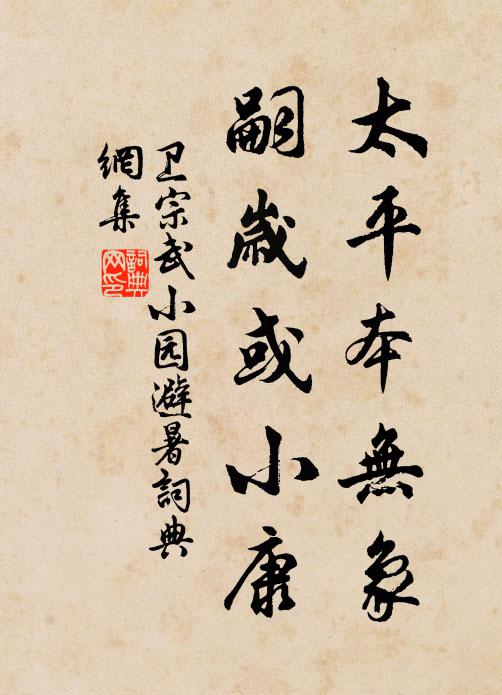 太平本無象
嗣歲或小康
卫宗武小园避暑詞典
網集
詞典
网印